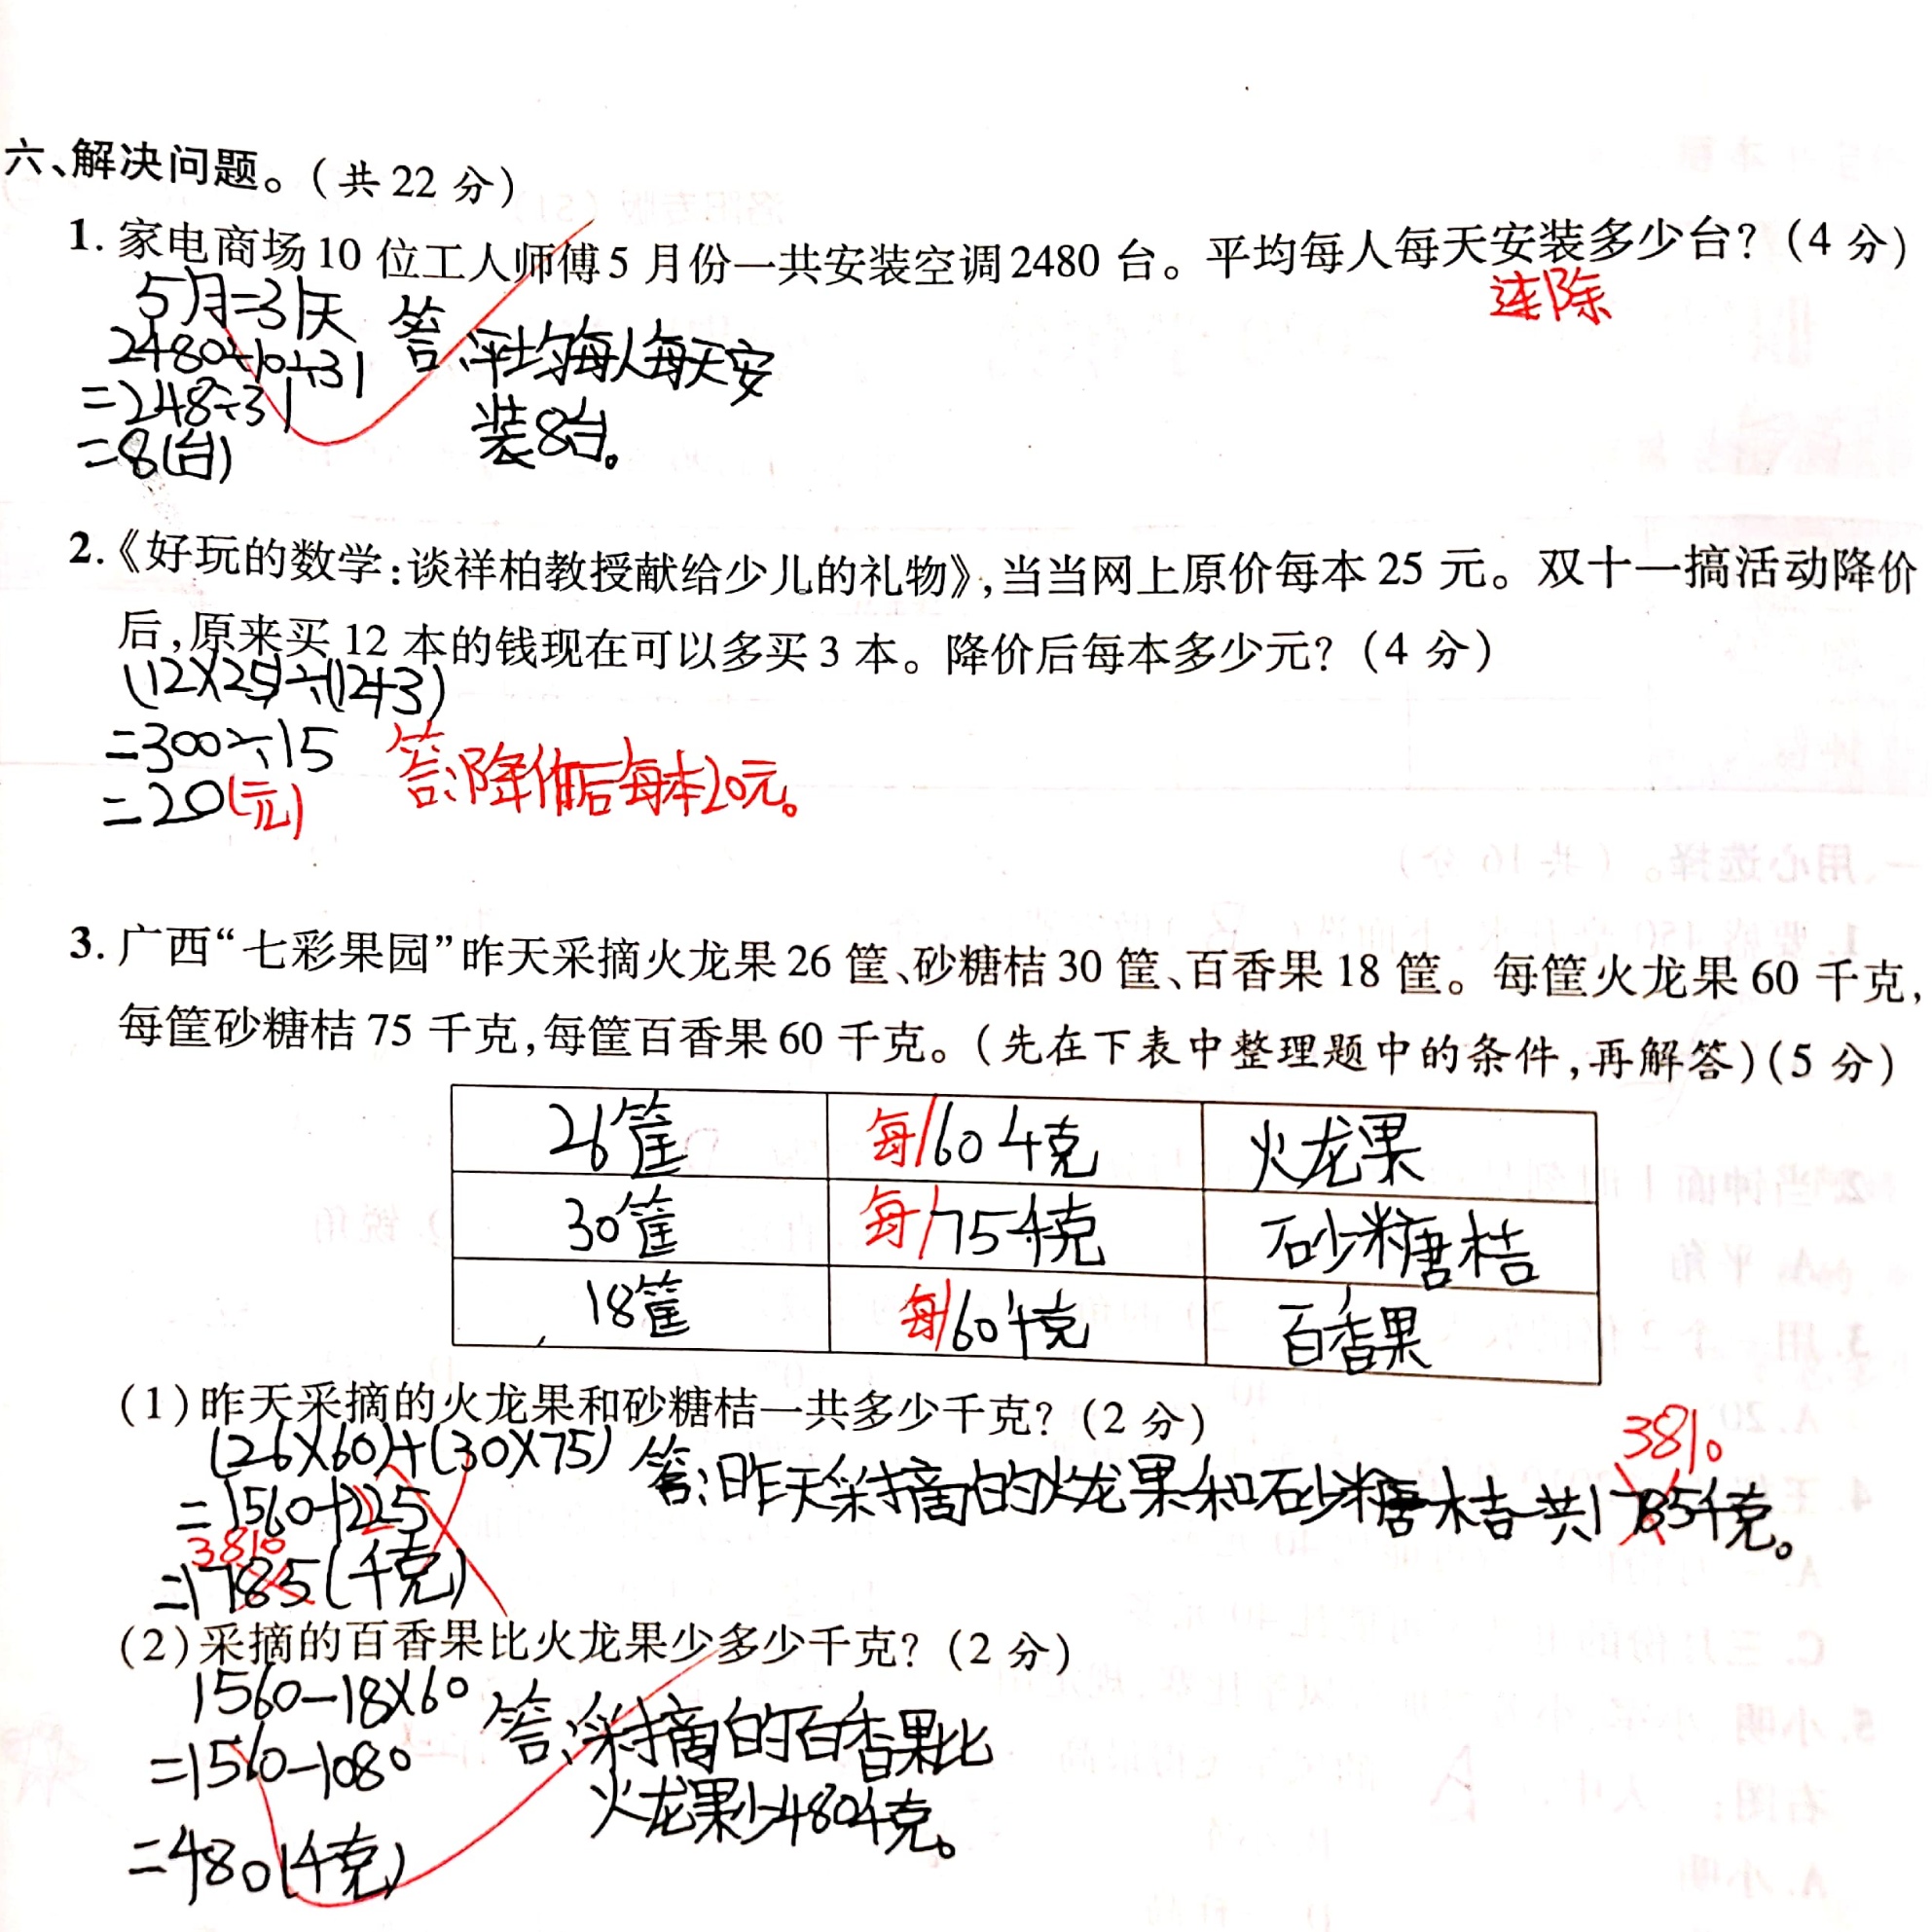 六、解决问题。(共22分)
1. 家电商场10位工人师傅5月份一共安装空调2480台。平均每人每天安装多少台?(4分)
连除
5月=31天
2480÷10÷31
=248÷31
=8(台)
答:平均每人每天安
装8台。
2.《好玩的数学:谈祥柏教授献给少儿的礼物》,当当网上原价每本25元。双十一搞活动降价
后,原来买12本的钱现在可以多买3本。降价后每本多少元?(4分)
(12×25)÷(12+3)
=300÷15
=20(元)
答:降价后每本20元。
3. 广西“七彩果园”昨天采摘火龙果26筐、砂糖桔30筐、百香果18筐。每筐火龙果60千克,
每筐砂糖桔75千克,每筐百香果60千克。(先在下表中整理题中的条件,再解答)(5分)
26筐 每/60千克 火龙果
30筐 每/75千克 砂糖桔
18筐 每/60千克 百香果
(1)昨天采摘的火龙果和砂糖桔一共多少千克?(2分)
(26×60)+(30×75)
=1560+225
3810
=1785(千克)
3810
答:昨天采摘的火龙果和砂糖桔一共1785千克。
(2)采摘的百香果比火龙果少多少千克?(2分)
1560-18×60
=1560-1080
=480(千克)
答:采摘的百香果比
火龙果少480千克。